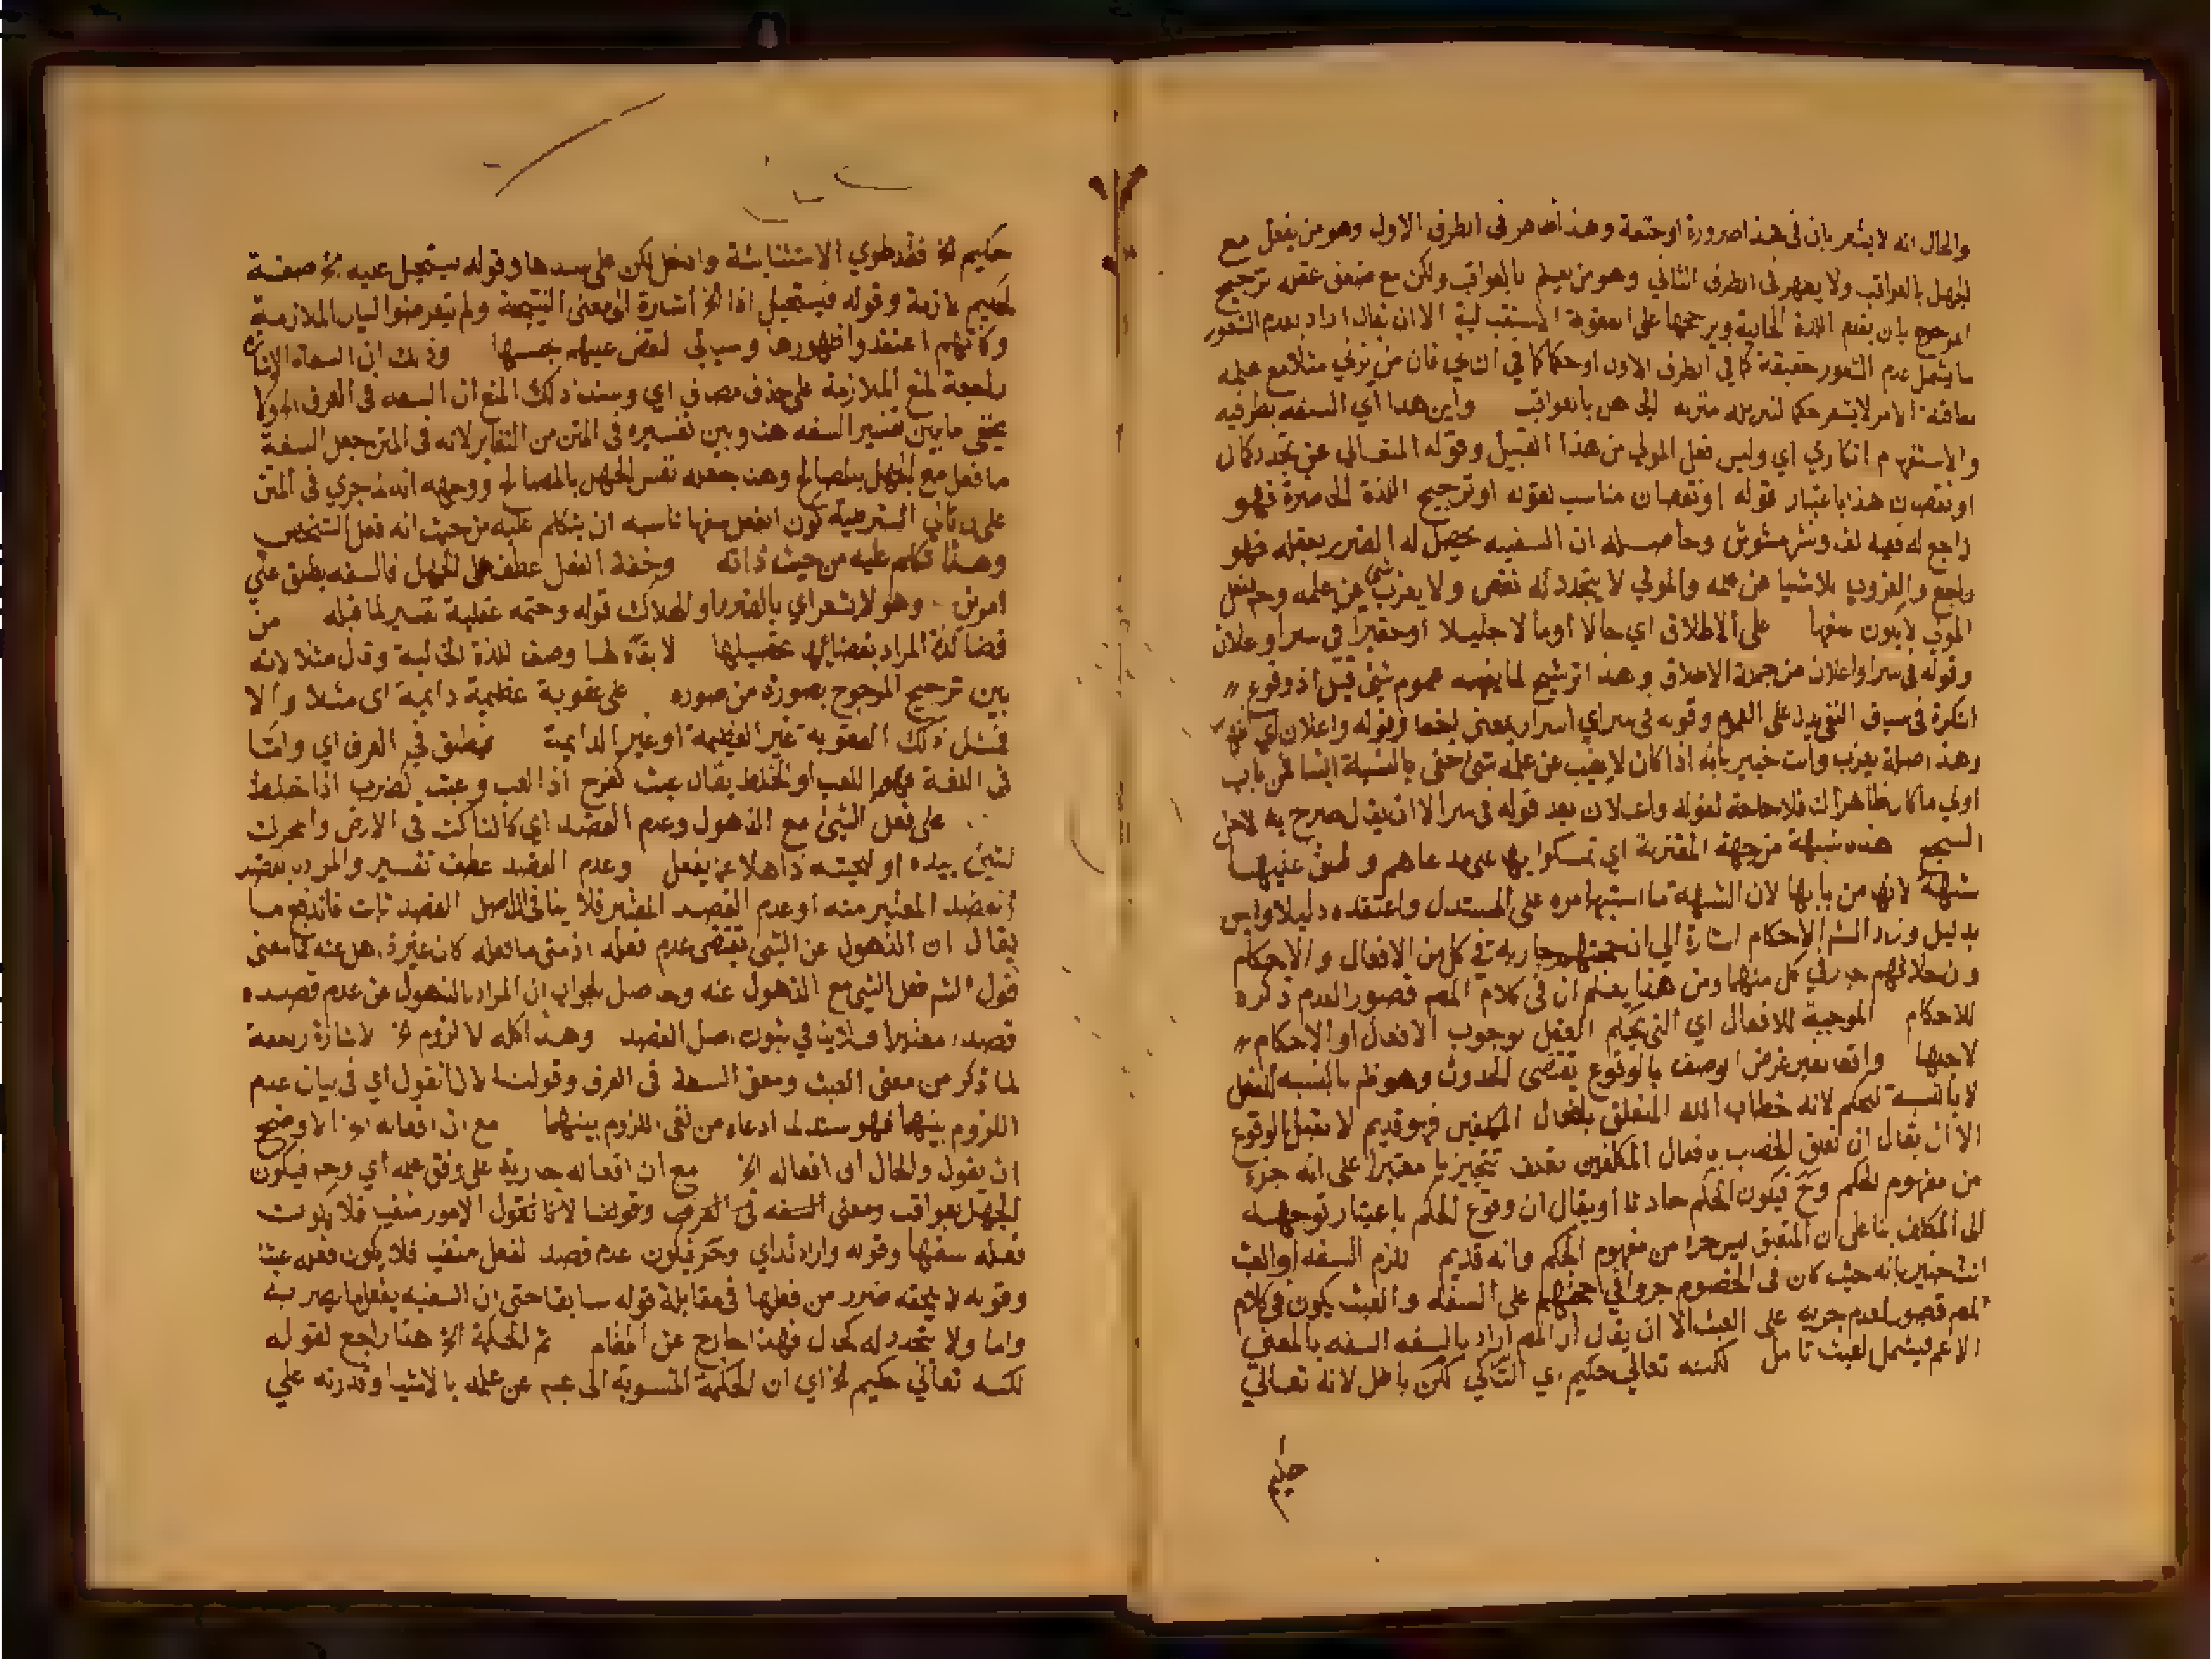 والحال انه لا يشعر بان فى هذا ضرورة او حتمة وهذا ظاهر فى الطرف الاول وهو من يفعل مع
الجهل بالعواقب ولا يظهر فى الطرف الثاني وهو من يعلم بالعواقب ولكن مع ضعف عقله ترجيح
المرجوح بان يقدم اللذة الحالية ويرجحها على العقوبة الاستقبالية الا ان يقال اراد بعدم الشعور
ما يشمل عدم الشعور حقيقة كما فى الطرف الاول او حكما كما في الثاني فان من يزني مثلا مع علمه
بعاقبة الامر لا يشعر حكما لتنزيله منزلة الجاهل بالعواقب واين هذا اي السفه بطرفيه
والاستفهام انكاري اي وليس فعل المولي من هذا القبيل وقوله المتعالي عن تجدد كمال
او نقصان هذا باعتبار قوله او نقصان مناسب لقوله او ترجيح اللذة الحاضرة فهو
راجع له ففيه لف ونشر مشوش وحاصله ان السفيه يحصل له الضرر بعقله فهو
راجع والعزوب بلاشيا عن علمه والمولي لا يتجدد له نقص ولا يعزب شئ عن علمه وحـ بفعل
المولي لا يكون سفها على الاطلاق اي حالا او مالا جليلا او حقيرا في سر او علان
وقوله فى سر او اعلان من جملة الاطلاق وهذا ترشيح لما يفهمه عموم شئ قبل اذ وقوع
النكرة فى سياق النفي يدل على العموم وقوله فى سر اي اسرار بمعنى الخفا وقوله واعلان اي
وهذا صلة يعزب وانت خبير بانه اذا كان لا يغيب عن علمه شئ خفى بالنسبة الينا فمن باب
اولي ما كان ظاهرا لك فلا حاجة لقوله واعلان بعد قوله فى سر الا ان يقال صرح به لاجل
السجع هذه شبهة من جهة المعتزلة اي تمسكوا بها على مدعاهم و طلق عليها
شبهة لانها من بابها لان الشبهة ما اشتبها مره على المستدل واعتقده دليلا وليس
بدليل وزاد الشم الاحكام اشارة الى ان حجتهم جارية في كل من الافعال و الاحكام
وان خلافهم جار في كل منهما ومن هذا يعلم ان فى كلام المصـ قصور العدم ذكره
للاحكام الموجبة للافعال اي التي يحكم العقل بوجوب الافعال او الاحكام
لاجلها واقعا بغير غرض الوصف بالوقوع يقتضى الحدوث وهو ظم بالنسبه للفعل
لا بالنسبة للحكم لانه خطاب الله المتعلق بافعال المكلفين فهو قديم لا يقبل الوقوع
الا ان يقال ان تعلق الخطاب بافعال المكلفين تعلقا تنجيزيا معتبرا على انه جزء
من مفهوم الحكم وحـ فيكون الحكم حادثا او يقال ان وقوع الحكم باعتبار توجهه
الى المكلف بنا على ان التعلق ليس جزا من مفهوم الحكم وانه قديم للزم السفه او العبث
انت خبير بانه حيث كان فى الخصوم جروا في حجتهم على السفه والعبث يكون في كلام
المصـ قصور لعدم جريه على العبث الا ان يقال ان المصـ اراد بالسفه السفه بالمعنى
الاعم فيشمل العبث تامل لكنه تعالي حكيم اي التالي لكن باطل لانه تعالي
حكيم
حكيم الخ فقد طوي الاستثنائية وادخل لكن على سندها وقوله يستحيل عليه الخ صفة
لحكيم لازمة وقوله فيستحيل اذا الخ اشارة الى معنى النتيجة ولم يتعرضوا لبيان الملازمة
وكانهم اعتقدوا ظهورها وسياتي لعض عليهم بحسبها وذلك ان السعاه الاشارة
راجعة لمنع الملازمة على حذف مضاف اي وسند ذلك المنع ان السفه فى العرف الخ ولا
يخفى ما بين تفسير السفه هنا وبين تفسيره فى المتن من التغاير لانه فى المتن جعل السفه
ما فعل مع الجهل بالمصالح وهنا جعله نفس الجهل بالمصالح ووجهه انه لما جري فى المتن
على بيان الشرطية كون الفعل سفها ناسبه ان يتكلم عليه من حيث انه فعل الشخص
وهنا تكلم عليه من حيث ذاته وخفة العقل عطف على الجهل فالسفه يطلق على
امرين وهو لا يشعر اي بالضرر او الهلاك قوله وحتمه عقلية تفسير لما قبله من
قضا لذة المراد بقضائها تحصيلها لا بقاء لها وصف للذة الحالية وقال مثلا لانه
بين ترجيح المرجوح بصورة من صوره على عقوبة عظيمة دايمة اى مثلا والا
فمثل ذلك العقوبة غير العظيمة او غير الدايمة يطلق في العرف اي واما
فى اللغة فهو اللعب او الخلط يقال عبث كفرح اذا لعب وعبث كضرب اذا خلط
على فعل الشئ مع الذهول وعدم القصد اي كالناكت فى الارض والمحرك
لشئ بيده او لحيته ذاهلا عما يفعل وعدم القصد عطف تفسير والمراد بالقصد
القصد المعتبر منه او عدم القصد المعتبر فلا ينافى ان اصل القصد ثابت فاندفع ما
يقال ان الذهول عن الشئ يقتضى عدم فعله اذ متى ما فعله كان غير ذاهل عنه فما معنى
قول الشم فعل الشئ مع الذهول عنه وحاصل الجواب ان المراد بالذهول عن عدم قصده
قصدا معتبرا فلا ينافي ثبوت اصل القصد وهذا كله لا لزوم الخ الاشارة راجعة
لما ذكر من معنى العبث ومعنى السفه فى العرف وقولنا لانا نقول اي فى بيان عدم
اللزوم بينهما فهو سند لما ادعاه من نفى اللزوم بينهما مع ان افعاله الخ الاوضح
ان يقول والحال ان افعاله الخ مع ان افعاله جارية على وفق علمه اي وحـ فيكون
الجهل بعواقب ومعنى السفه فى العرف وقولنا لانا نقول الامور منفيا فلا يكون
فعله سفها وقوله وارادته اي وحـ فيكون عدم قصد لفعل منفيا فلا يكون فعله عبثا
وقوله لا يلحقه ضرر من فعلها فى مقابلة قوله سابقا حتى ان السفيه يفعل ما يضر به
واما ولا يتجدد له كمال فهذا خارج عن المقام ثم الحكمة الخ هذا راجع لقوله
لكنه تعالي حكيم الخ اي ان الحكمة المنسوبة الى عبارة عن علمه بالاشيا وقدرته علي